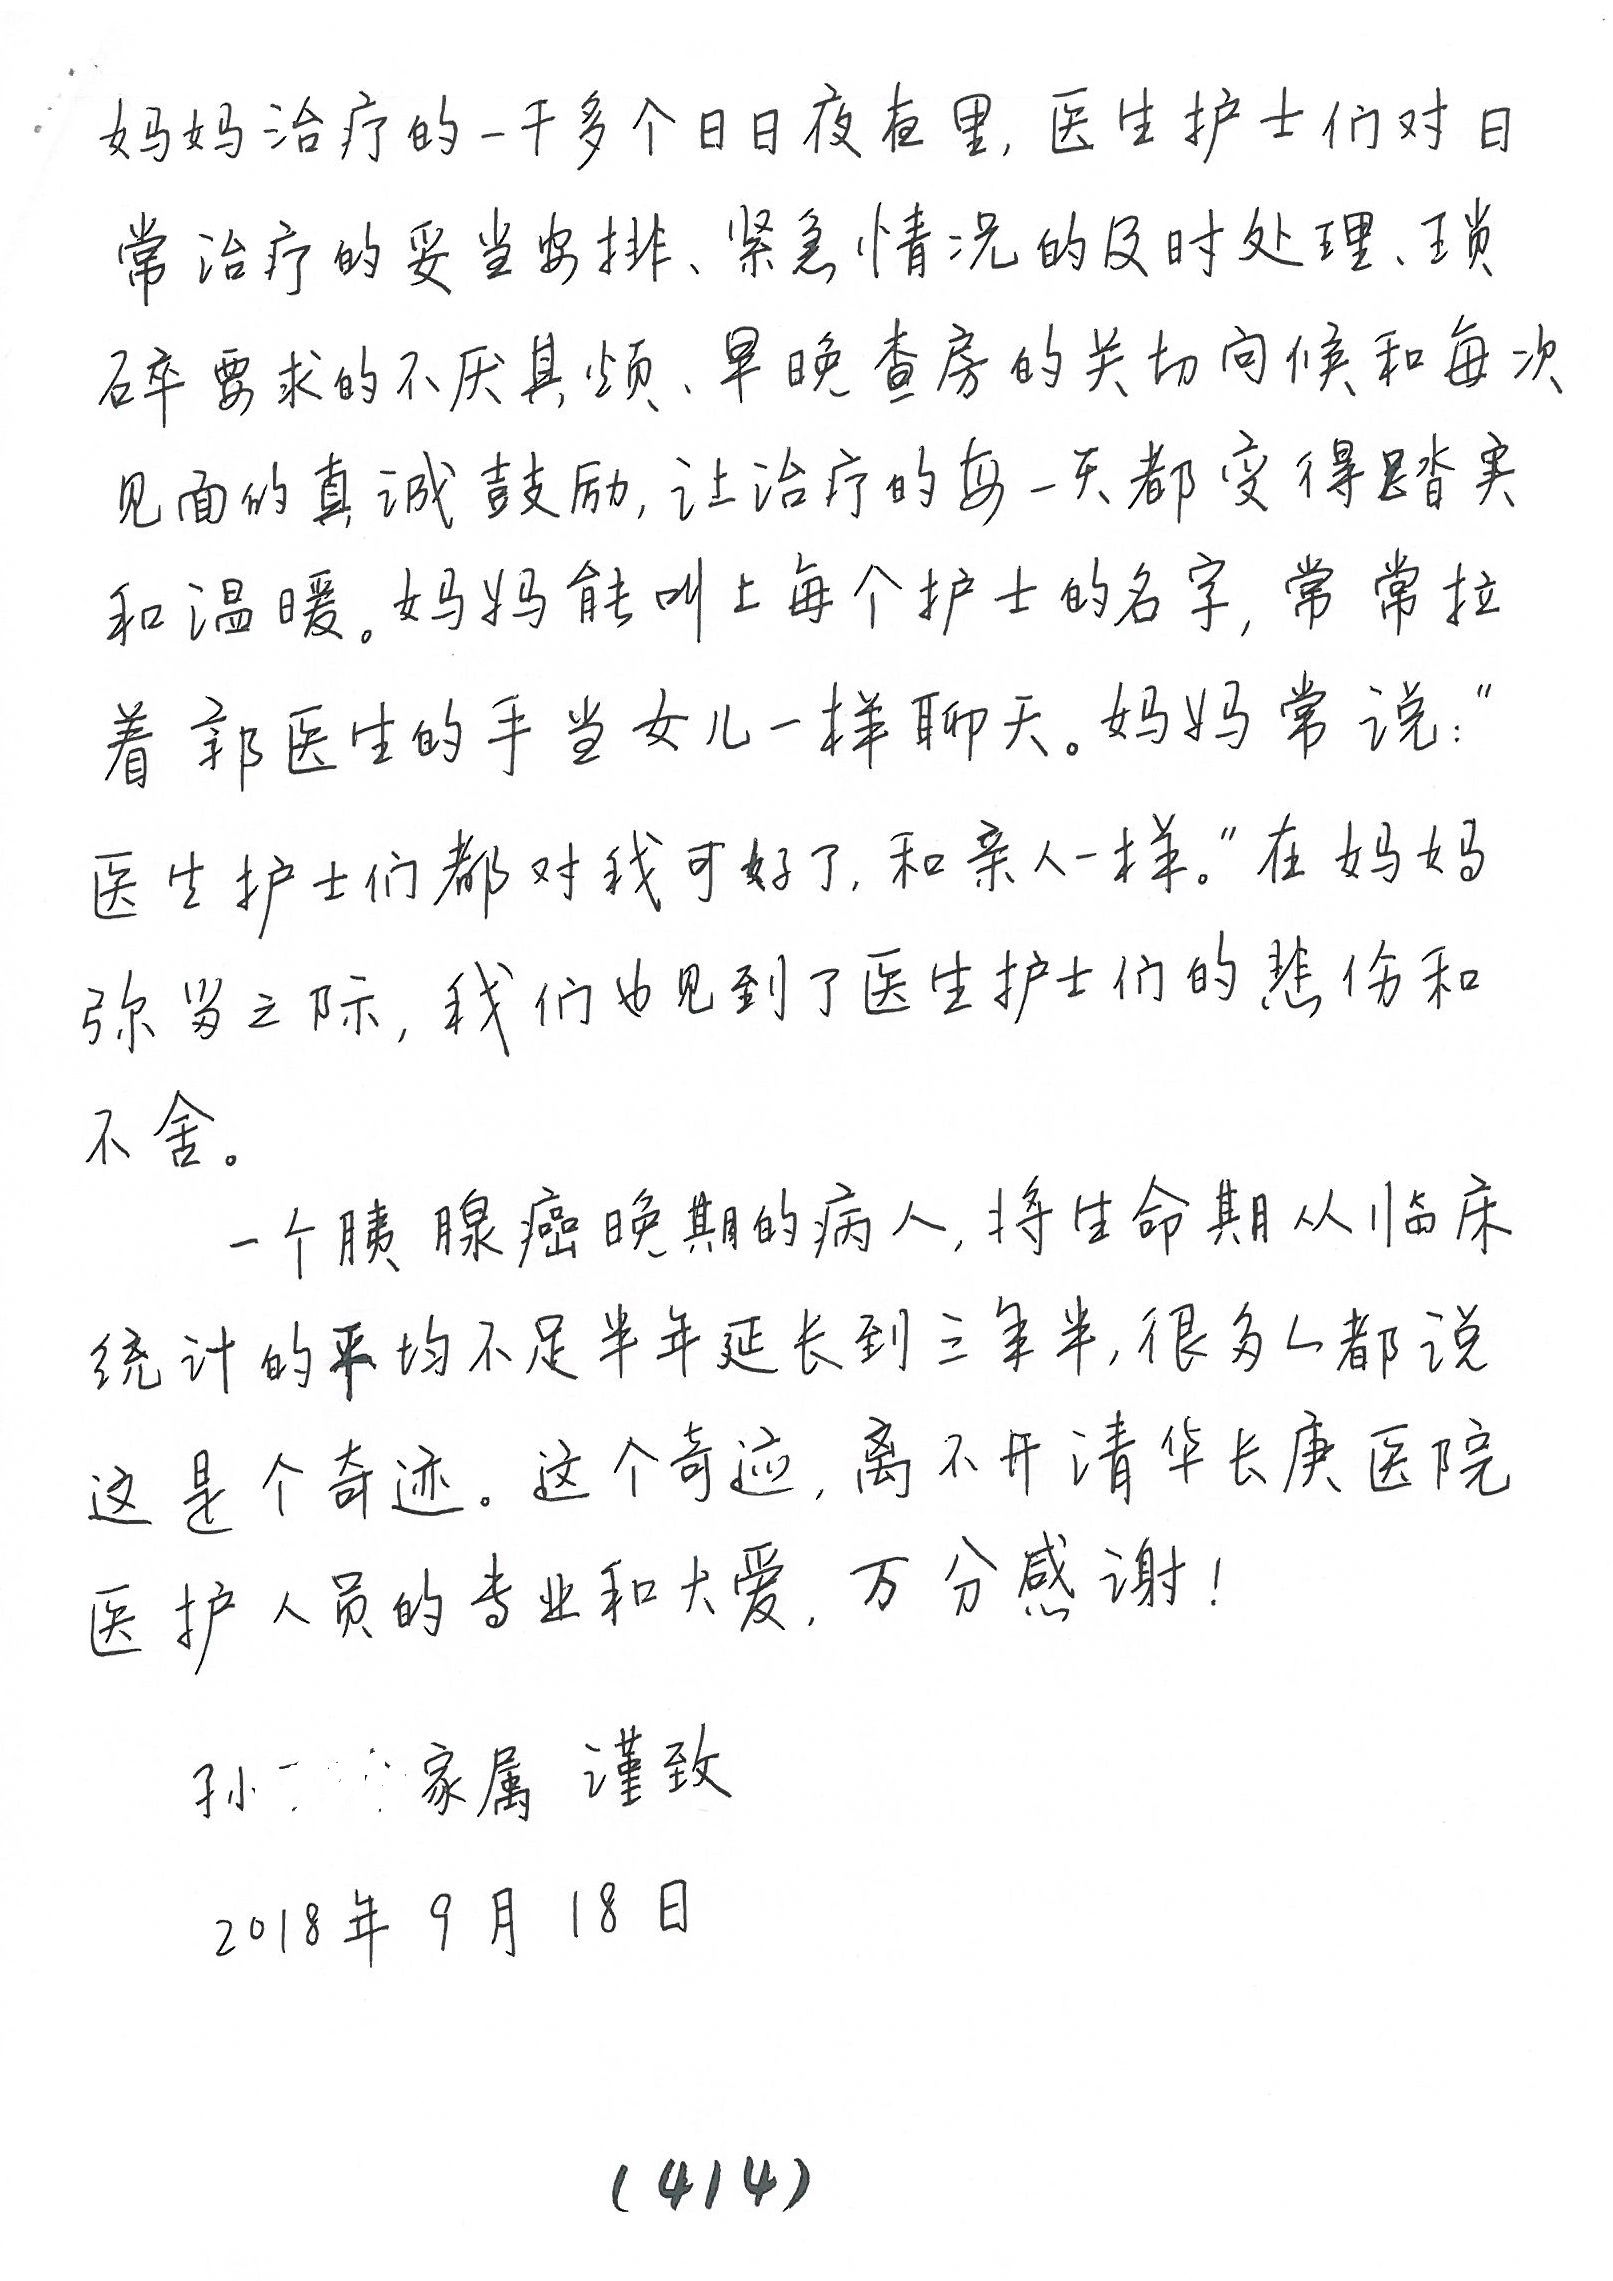 妈妈治疗的一千多个日日夜夜里,医生护士们对日
常治疗的妥当安排、紧急情况的及时处理、琐
碎要求的不厌其烦、早晚查房的关切问候和每次
见面的真诚鼓励,让治疗的每一天都变得踏实
和温暖。妈妈能叫上每个护士的名字,常常拉
着郭医生的手当女儿一样聊天。妈妈常说:"
医生护士们都对我可好了,和亲人一样。"在妈妈
弥留之际,我们也见到了医生护士们的悲伤和
不舍。
一个胰腺癌晚期的病人,将生命期从临床
统计的平均不足半年延长到三年半,很多人都说
这是个奇迹。这个奇迹,离不开清华长庚医院
医护人员的专业和大爱,万分感谢!
孙 家属 谨致
2018年9月18日
(4/4)